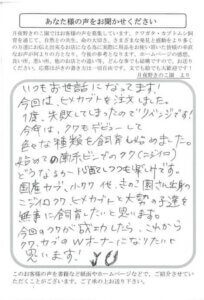 あなた様の声をお聞かせください
月夜野きのこ園ではお客様の声を募集しています。クワガタ・カブトムシ飼
育を通じて、自然との共生、命の大切さ、さまざまな発見と感動をより多く
の方達にお伝え出来るお店になる為に実際に用品をお使い頂いた皆様の率直
なお声が何より力となります。今後の参考のため、商品のご感想、ホームペー
ジの感想、他のお店との違い等、どんな事でも結構ですので、お送り
ください。応募はがきの書き方は一切自由です。文でも絵でも大歓迎です!
月夜野きのこ園 より
いつもお世話になってます!
今回は、ヒメカブトを注文しました。
1度、失敗してしまったのでリベンジです!
今年は、クワもデビューして
色々な種類を飼育し始めました。
始めての菌糸ビンでのクワ(ニジイロ)
どうなるか 心配しつつも楽しみです。
国産カブ、小クワ 他、きのこ園さん出身の
ニジイロクワ、ヒメカブトと大切の子達を
無事に飼育したいと思います。
今回のクワが成功したら、これから
クワ、カブのWオーナーになりたいと
思います!
このお客様の声を書籍など紙面やホームページなどで、ご紹介させていただく
ことがございます。ご了承の上お送り下さい。